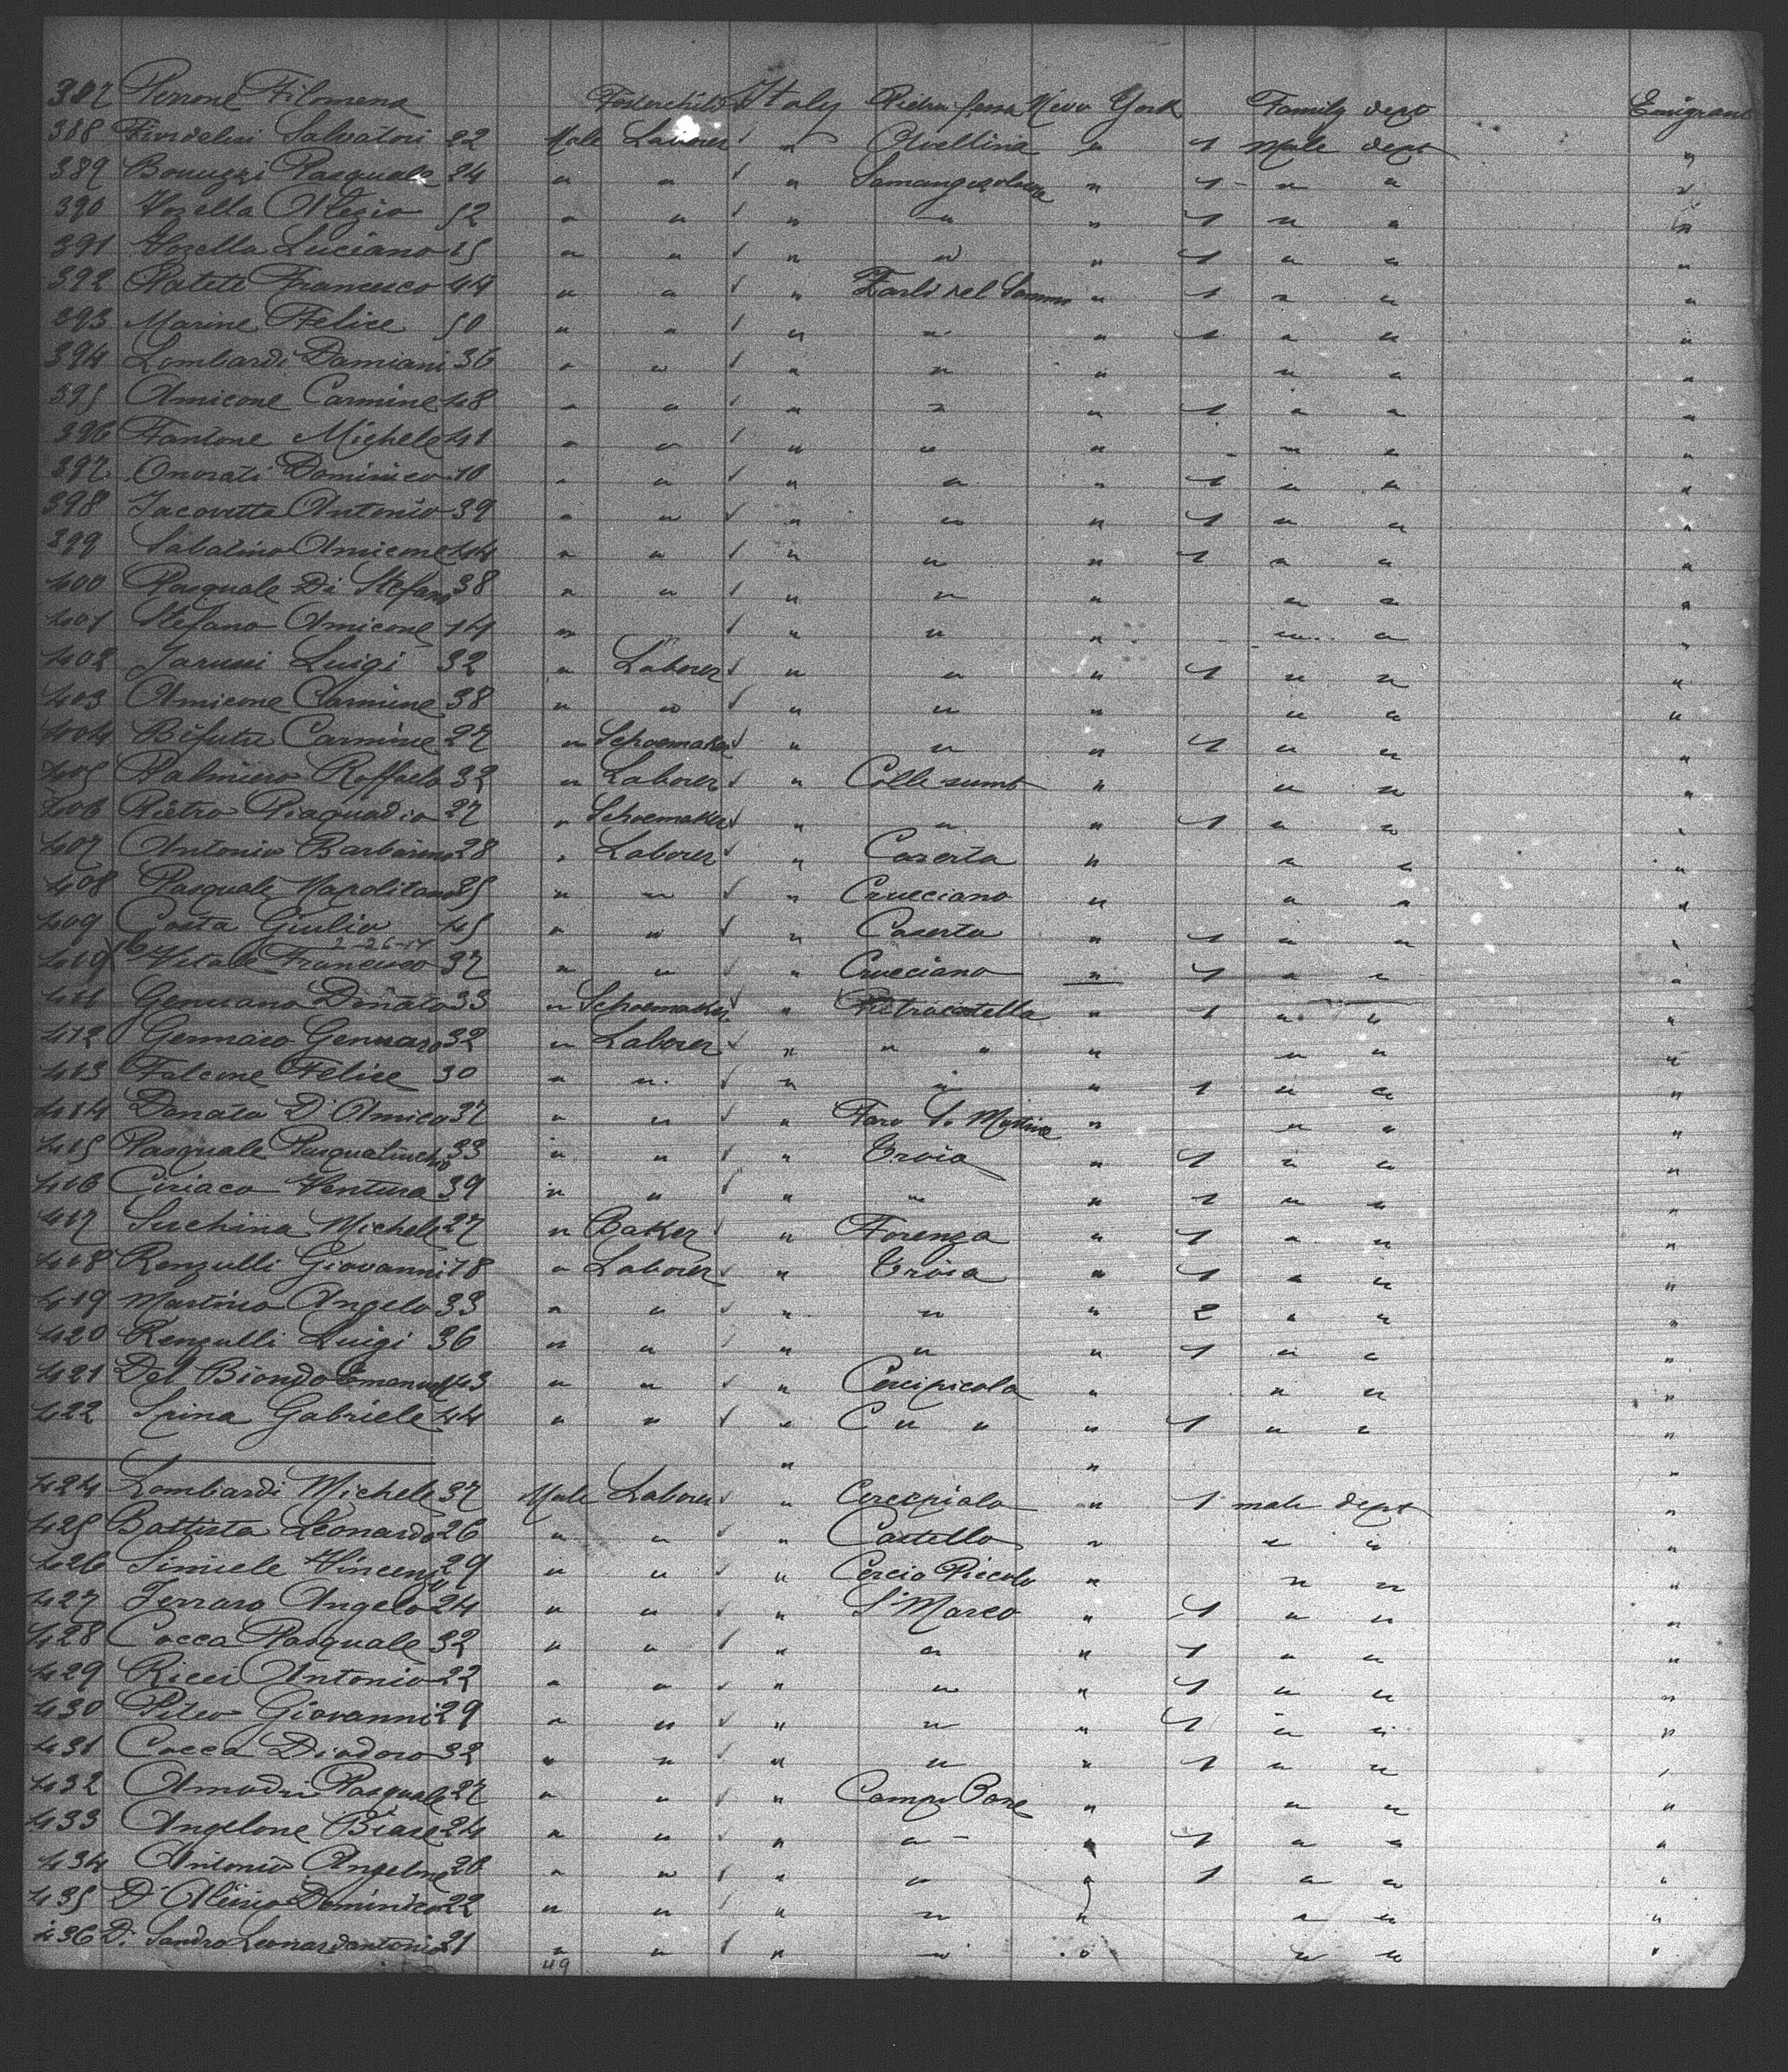 387 Perrone Filomena Fosterchild Italy Pietra fessa New York Family dept Emigrant
388 Salvatori 22 Male Laborer " Avellina " 1 Male dept "
389 Bonuzzi Pasquale 24 " " " " 1 " " "
390 Vozella 52 " " " " " 1 " " "
391 Vozella Luciano 15 " " " " " 1 " " "
392 Patete Francesco 44 " " " Forli del Sannio " 1 " " "
393 Marine Felice 50 " " " " " 1 " " "
394 Lombardi Damiani 36 " " " " " " " "
395 Amicone Carmine 48 " " " " " 1 " " "
396 Fantone Michele 41 " " " " " " " "
397 Onorati Dominico 10 " " " " " 1 " " "
398 Jacovetta Antonio 39 " " " " " 1 " " "
399 Sabatino Amicone 44 " " " " " 1 " " "
400 Pasquale Di Stefano 38 " " " " " " " "
401 Stefano Amicone 14 " " " " " " "
402 Jarussi Luigi 32 " Laborer " " " 1 " " "
403 Amicone Carmine 38 " " " " " " " "
404 Carmine 27 " Schoemaker " " " 1 " " "
405 Palmiero Raffaelo 32 " Laborer " " " " "
406 Pietro Piaquadio 27 " Schoemaker " " " 1 " " "
407 Antonio 28 " Laborer " Caserta " " " "
408 Pasquale Napolitano 25 " " " Crucciano " " " "
409 Costa Giulio 45 " " " Caserta " 1 " " "
2-26-14
410 Vitale Francesco 37 " " " Crucciano " 1 " " "
411 Genuano Donato 33 " Schoemaker " Pietracatella " 1 " " "
412 Gennaio Gennaro 32 " Laborer " " " " " " "
413 Falcone Felice 30 " " " " " 1 " " "
414 Donato D'Amico 37 " " " " " " "
415 Pasquale 33 " " " Troia " 1 " " "
416 Ciriaco Ventura 39 " " " " " 1 " " "
417 Suchina Michele 27 " Baker " Forenza " 1 " " "
418 Renzulli Giovanni 18 " Laborer " Troia " 1 " " "
419 Martino Angelo 33 " " " " " 2 " " "
420 Renzulli Luigi 36 " " " " " 1 " " "
421 Del Biondo Emanuel 43 " " " Cercipicola " " " "
422 Spina Gabriele 44 " " " C " " " 1 " " "
" " "
424 Lombardi Michele 37 Male Laborer " " 1 male dept "
425 Battista Leonardo 26 " " " Castello " " " "
426 Simiele Vincenzo 29 " " " Cercio Piccolo " " " "
427 Ferraro Angelo 24 " " " S' Marco " 1 " " "
428 Cocca Pasquale 32 " " " " " 1 " " "
429 Ricci Antonio 22 " " " " " 1 " " "
430 Piteo Giovanni 29 " " " " " 1 " " "
431 Cocca Diodoro 32 " " " " " 1 " " "
432 Pasquale 27 " " " Campo Base " " " "
433 Angelone Biase 24 " " " " " 1 " " "
434 Antonio Angelone 20 " " " " " 1 " " "
435 D'Alisio Dominico 22 " " " " " " " "
436 Di Sandro Leonardantonio 21 " " " " " " " "
49